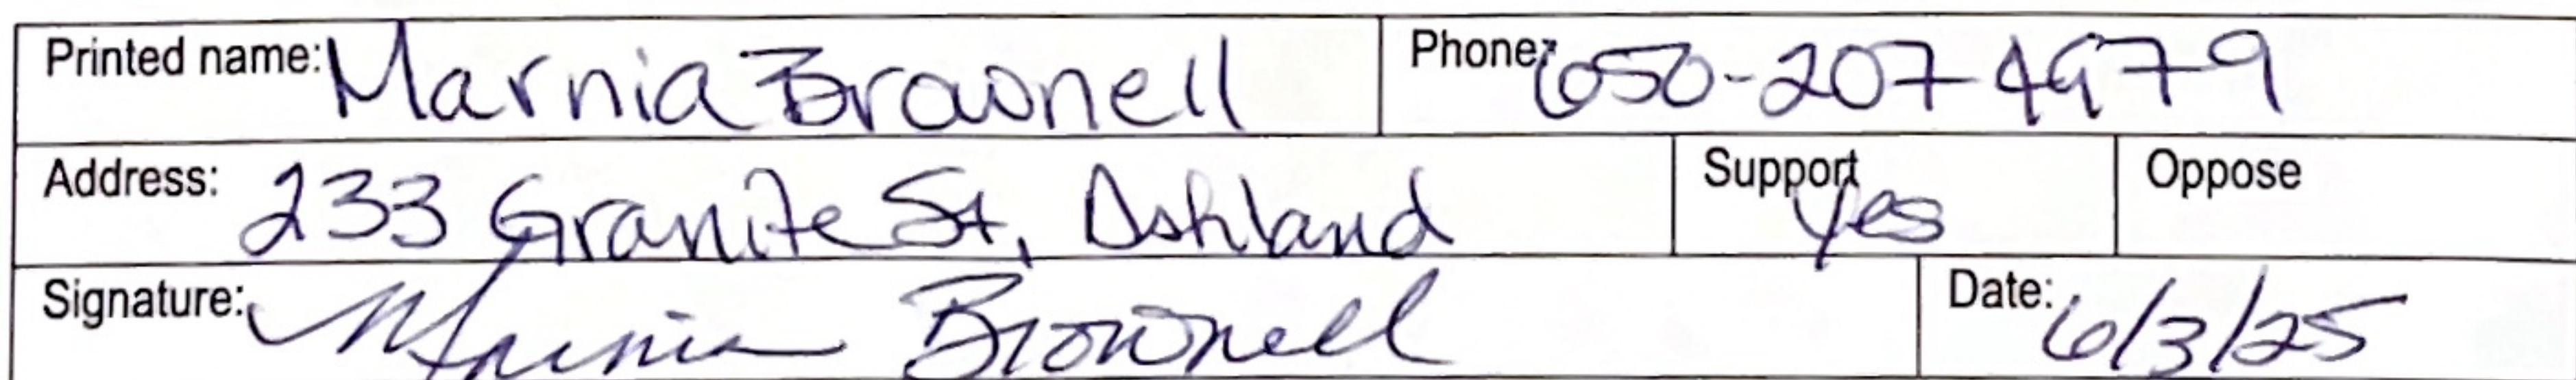 Printed name: Marnia Brownell Phone: 650-207 4979
Address: 233 Granite St, Ashland Support yes Oppose
Signature: Marnia Brownell Date: 6/3/25